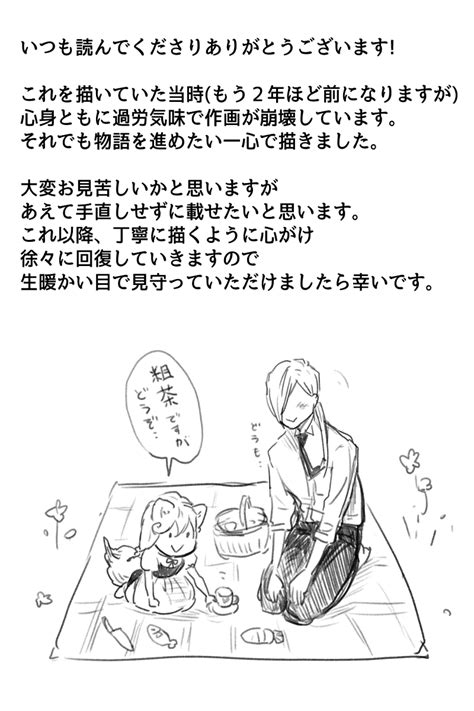 いつも読んでくださりありがとうございます!
これを描いていた当時(もう２年ほど前になりますが)
心身ともに過労気味で作画が崩壊しています。
それでも物語を進めたい一心で描きました。
大変お見苦しいかと思いますが
あえて手直しせずに載せたいと思います。
これ以降、丁寧に描くように心がけ
徐々に回復していきますので
生暖かい目で見守っていただけましたら幸いです。
粗茶ですが
どうぞ…
どうも…